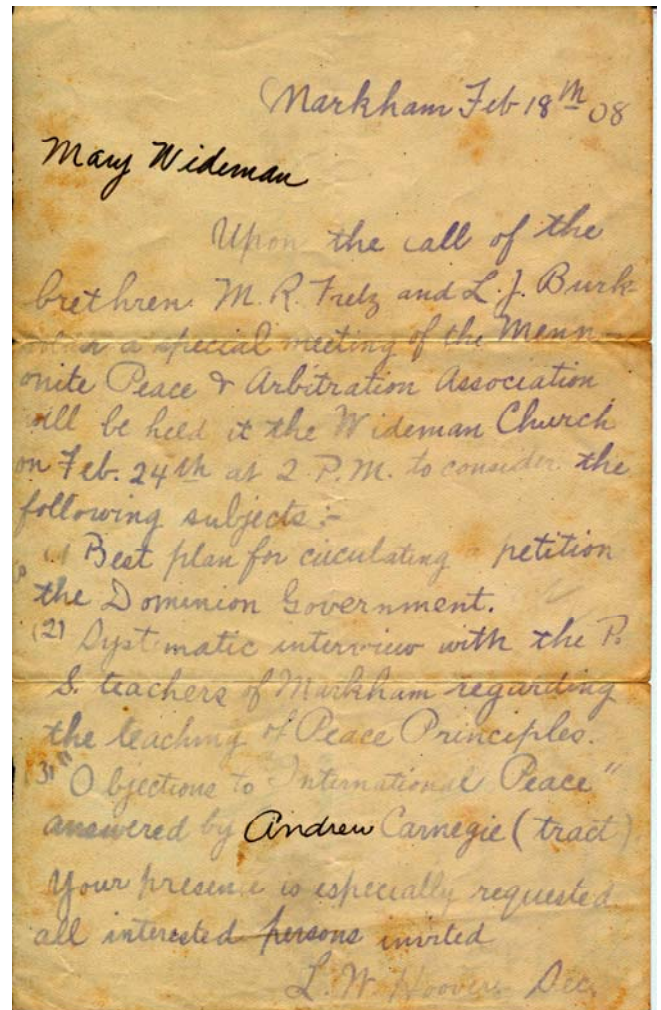 Markham Feb 18th 08
Mary Wideman
Upon the call of the
brethren. M. R. Fretz and L. J. Burk-
holder a special meeting of the Menn-
onite Peace & Arbitration Association
will be held it the Wideman Church
on Feb. 24th at 2 P.M. to consider the
following subjects:-
(1) Best plan for circulating a petition
the Dominion Government.
(2) Systematic interview with the P.
S. teachers of Markham regarding
the teaching of Peace Principles.
(3) "Objections to International Peace"
answered by Andrew Carnegie (tract)
Your presence is especially requested
all interested persons invited
L. W. Hoover Sec.